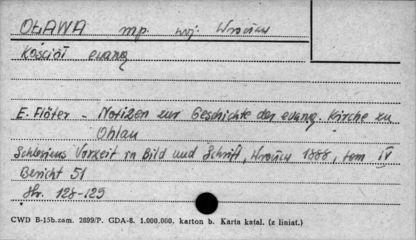 OŁAWA mp. woj. Wrocław
Kościół ewang
E. Flöter - Notizen zur Geschichte der evang. Kirche zu
Ohlau
Schlesiens Vorzeit in Bild und Schrift, Wrocław 1888, tom IV
Bericht 51
Str. 128-129
CWD B-15b.zam. 2899/P. GDA-8. 1.000.000. karton b. Karta katal. (z liniat.)